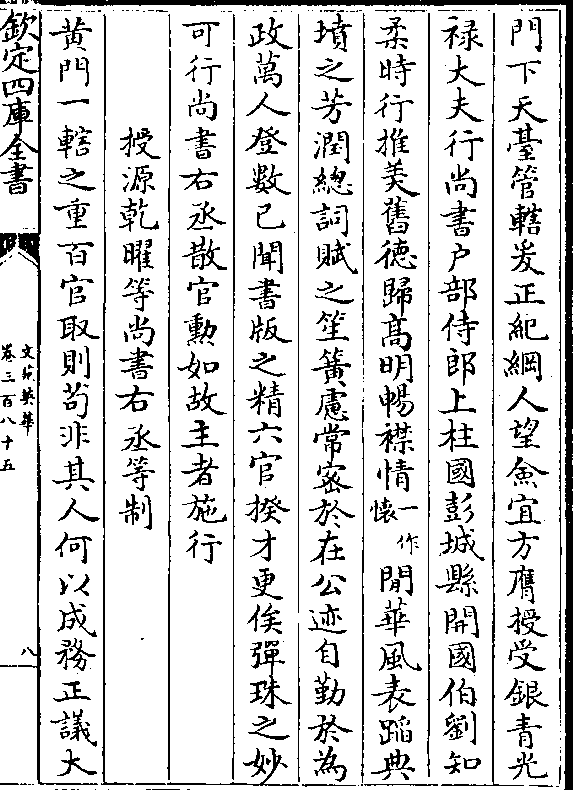 門下天臺管轄爰正紀綱人望僉宜方膺授受銀青光
禄大夫行尚書户部侍郎上柱國彭城縣開國伯劉知
柔時行推美舊德歸髙明暢襟情一作懷閒華風表蹈典
墳之芳潤總詞賦之笙簧慮常宻於在公迹自勤於為
政萬人登數已聞書版之精六官揆才更俟彈珠之妙
可行尚書右丞散官勳如故主者施行
授源乾曜等尚書右丞等制
黄門一轄之重百官取則茍非其人何以成務正議大
欽定四庫全書
文苑英華
卷三百八十五
八